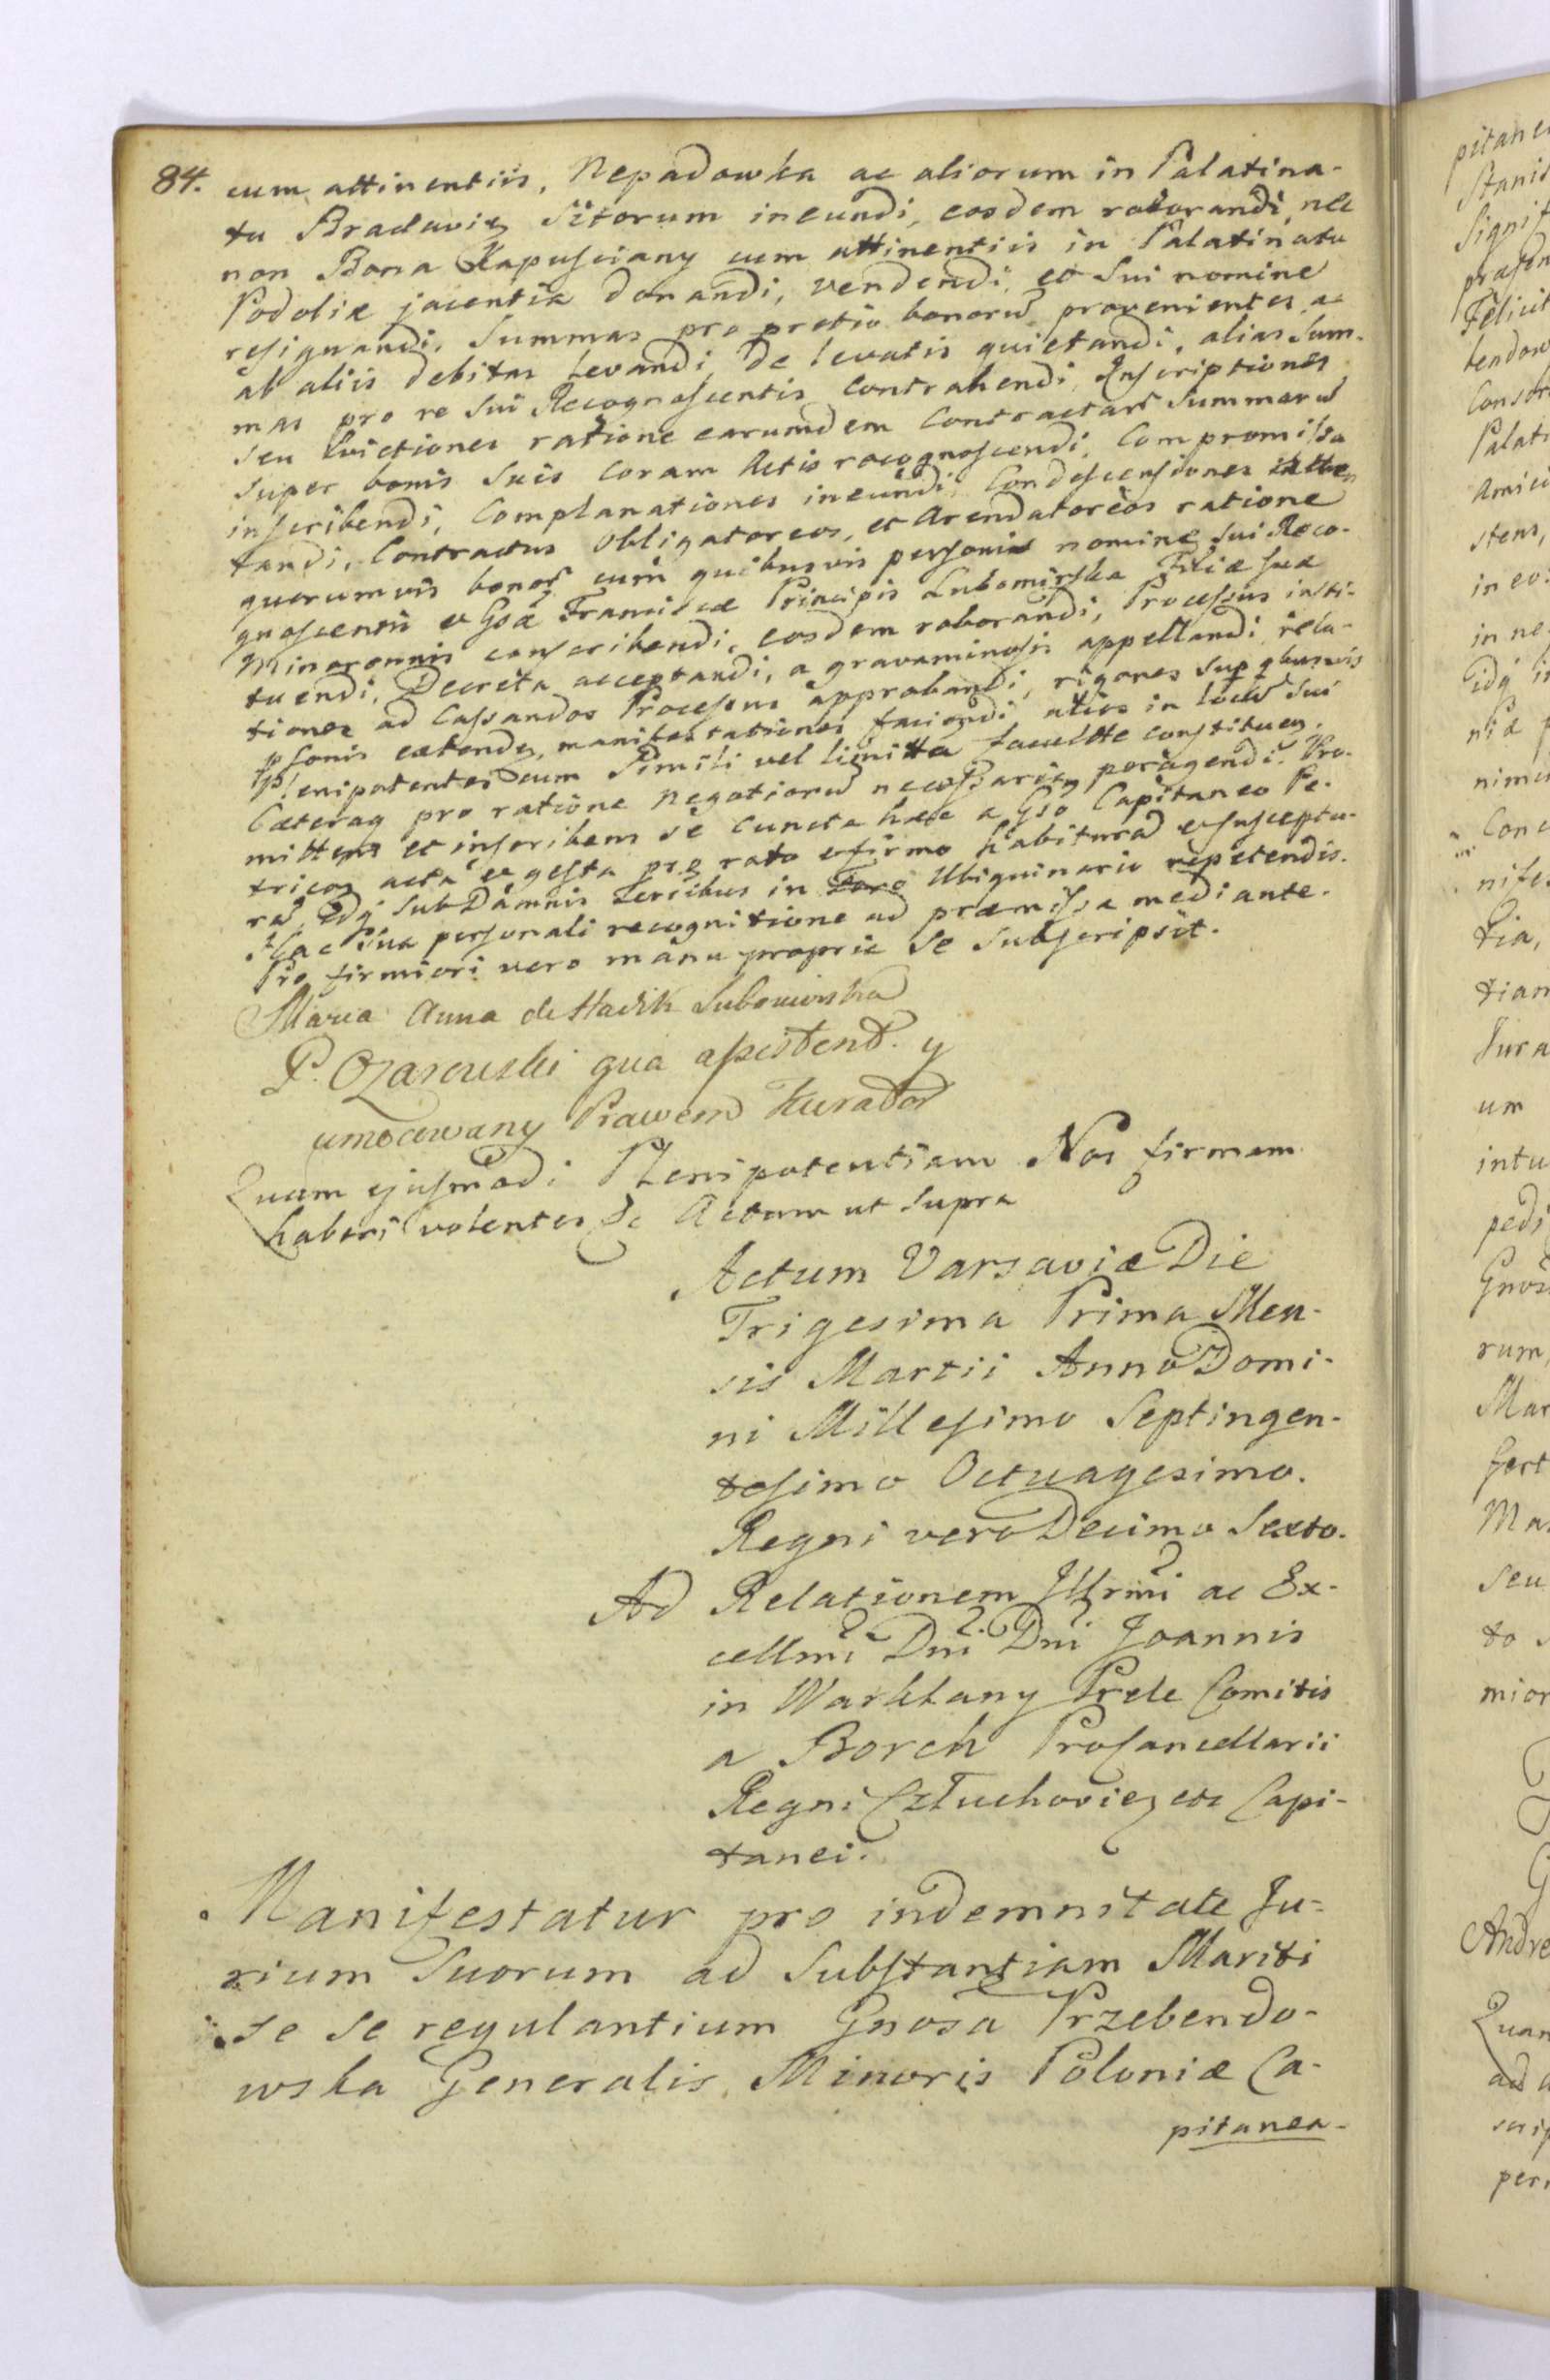 84. cum attinentiis, Nepadowka ac aliorum in Palatina-
tu Braclaviæ Sitorum ineundi, eosdem roborandi, nec
non Bona Kapusciany cum attinentiis in Palatinatu
Podoliæ jacentia donandi, vendendi, et Sui nomine
resignandi, Summas pro pretio bonorũ provenientes, ac
ab aliis debitas levandi, de levatis quietandi, alias Sum-
mas pro re Sui Recognoscentis contrahendi, Inscriptiones
seu Evictiones ratione earumdem Contractarũ Summarũ
super bonis Suis Coram Actis recognoscendi, Compromissa
inscribendi, Complanationes ineundi, Condescensiones
tandi, Contractus Obligatoreos, et Arendatoreos ratione
quorumvis bonor̃ cum quibusvis personis nomine Sui Reco-
gnoscentis et Gsæ Franciscæ Principis Lubomirska Filiæ suæ
Minorennis conscribendi, eosdem roborandi, Processus insti-
tuendi, Decreta acceptandi, a gravaminosis appellandi, rela-
tiones ad Cassandos Processus approbandi, rigores sup qbusvis
psonis extendẽ, manifestationes faciendi, alios in locũ Sui
Plenipotentes cum Simili vel limitta facultte constituen,
Cæteraq pro ratione negotiorũ necessaria peragendi. Pro-
mittens et inscribens se cuncta hæc a Gso Capitaneo Pe-
tricov acta et gesta pro rato et firmo habiturã et susceptu-
rã, Idq sub Damnis Terribus in Foro Ubiquinario repetendis.
Hac Sua personali recognitione ad præmissa mediante.
Pro firmiori vero manu propria Se Subscripsit.
Maria Anna de Hadik Lubomirska
P. Ozarowski qua assistent. y
umocowany Prawem Kurador
Quam ejusmodi Plenipotentiam Nos firmam
haberi volentes &c Actum ut Supra
Actum Varsaviæ Die
Trigesima Prima Men-
sis Martii Anno Domi-
ni Millesimo Septingen-
tesimo Octuagesimo.
Regni vero Decimo Sexto.
Ad Relationem Illrmi ac Ex-
cellmi Dni Dni Joannis
in Warklany Prele Comitis
a Borch Procancellarii
Regni Człuchovieñ etc Capi-
tanei.
Manifestatur pro indemnitate Ju-
rium Suorum ad Substantiam Mariti
se se regulantium Gnosa Przebendo-
wska Generalis Minoris Poloniæ Ca-
pitanea-
pitane
Stanis
Signif
præsen
Felicit
bendow
Consor
Palati
Amici
stens,
in eo
in ne
Idq i
niæ p
nimu
Conc
nifes
tia,
tian
Jura
um
intu
pedi
Gnos
rum,
Mar
fert
Ma
seu
to s
mior
Andre
Quam
ad a
scrip
per